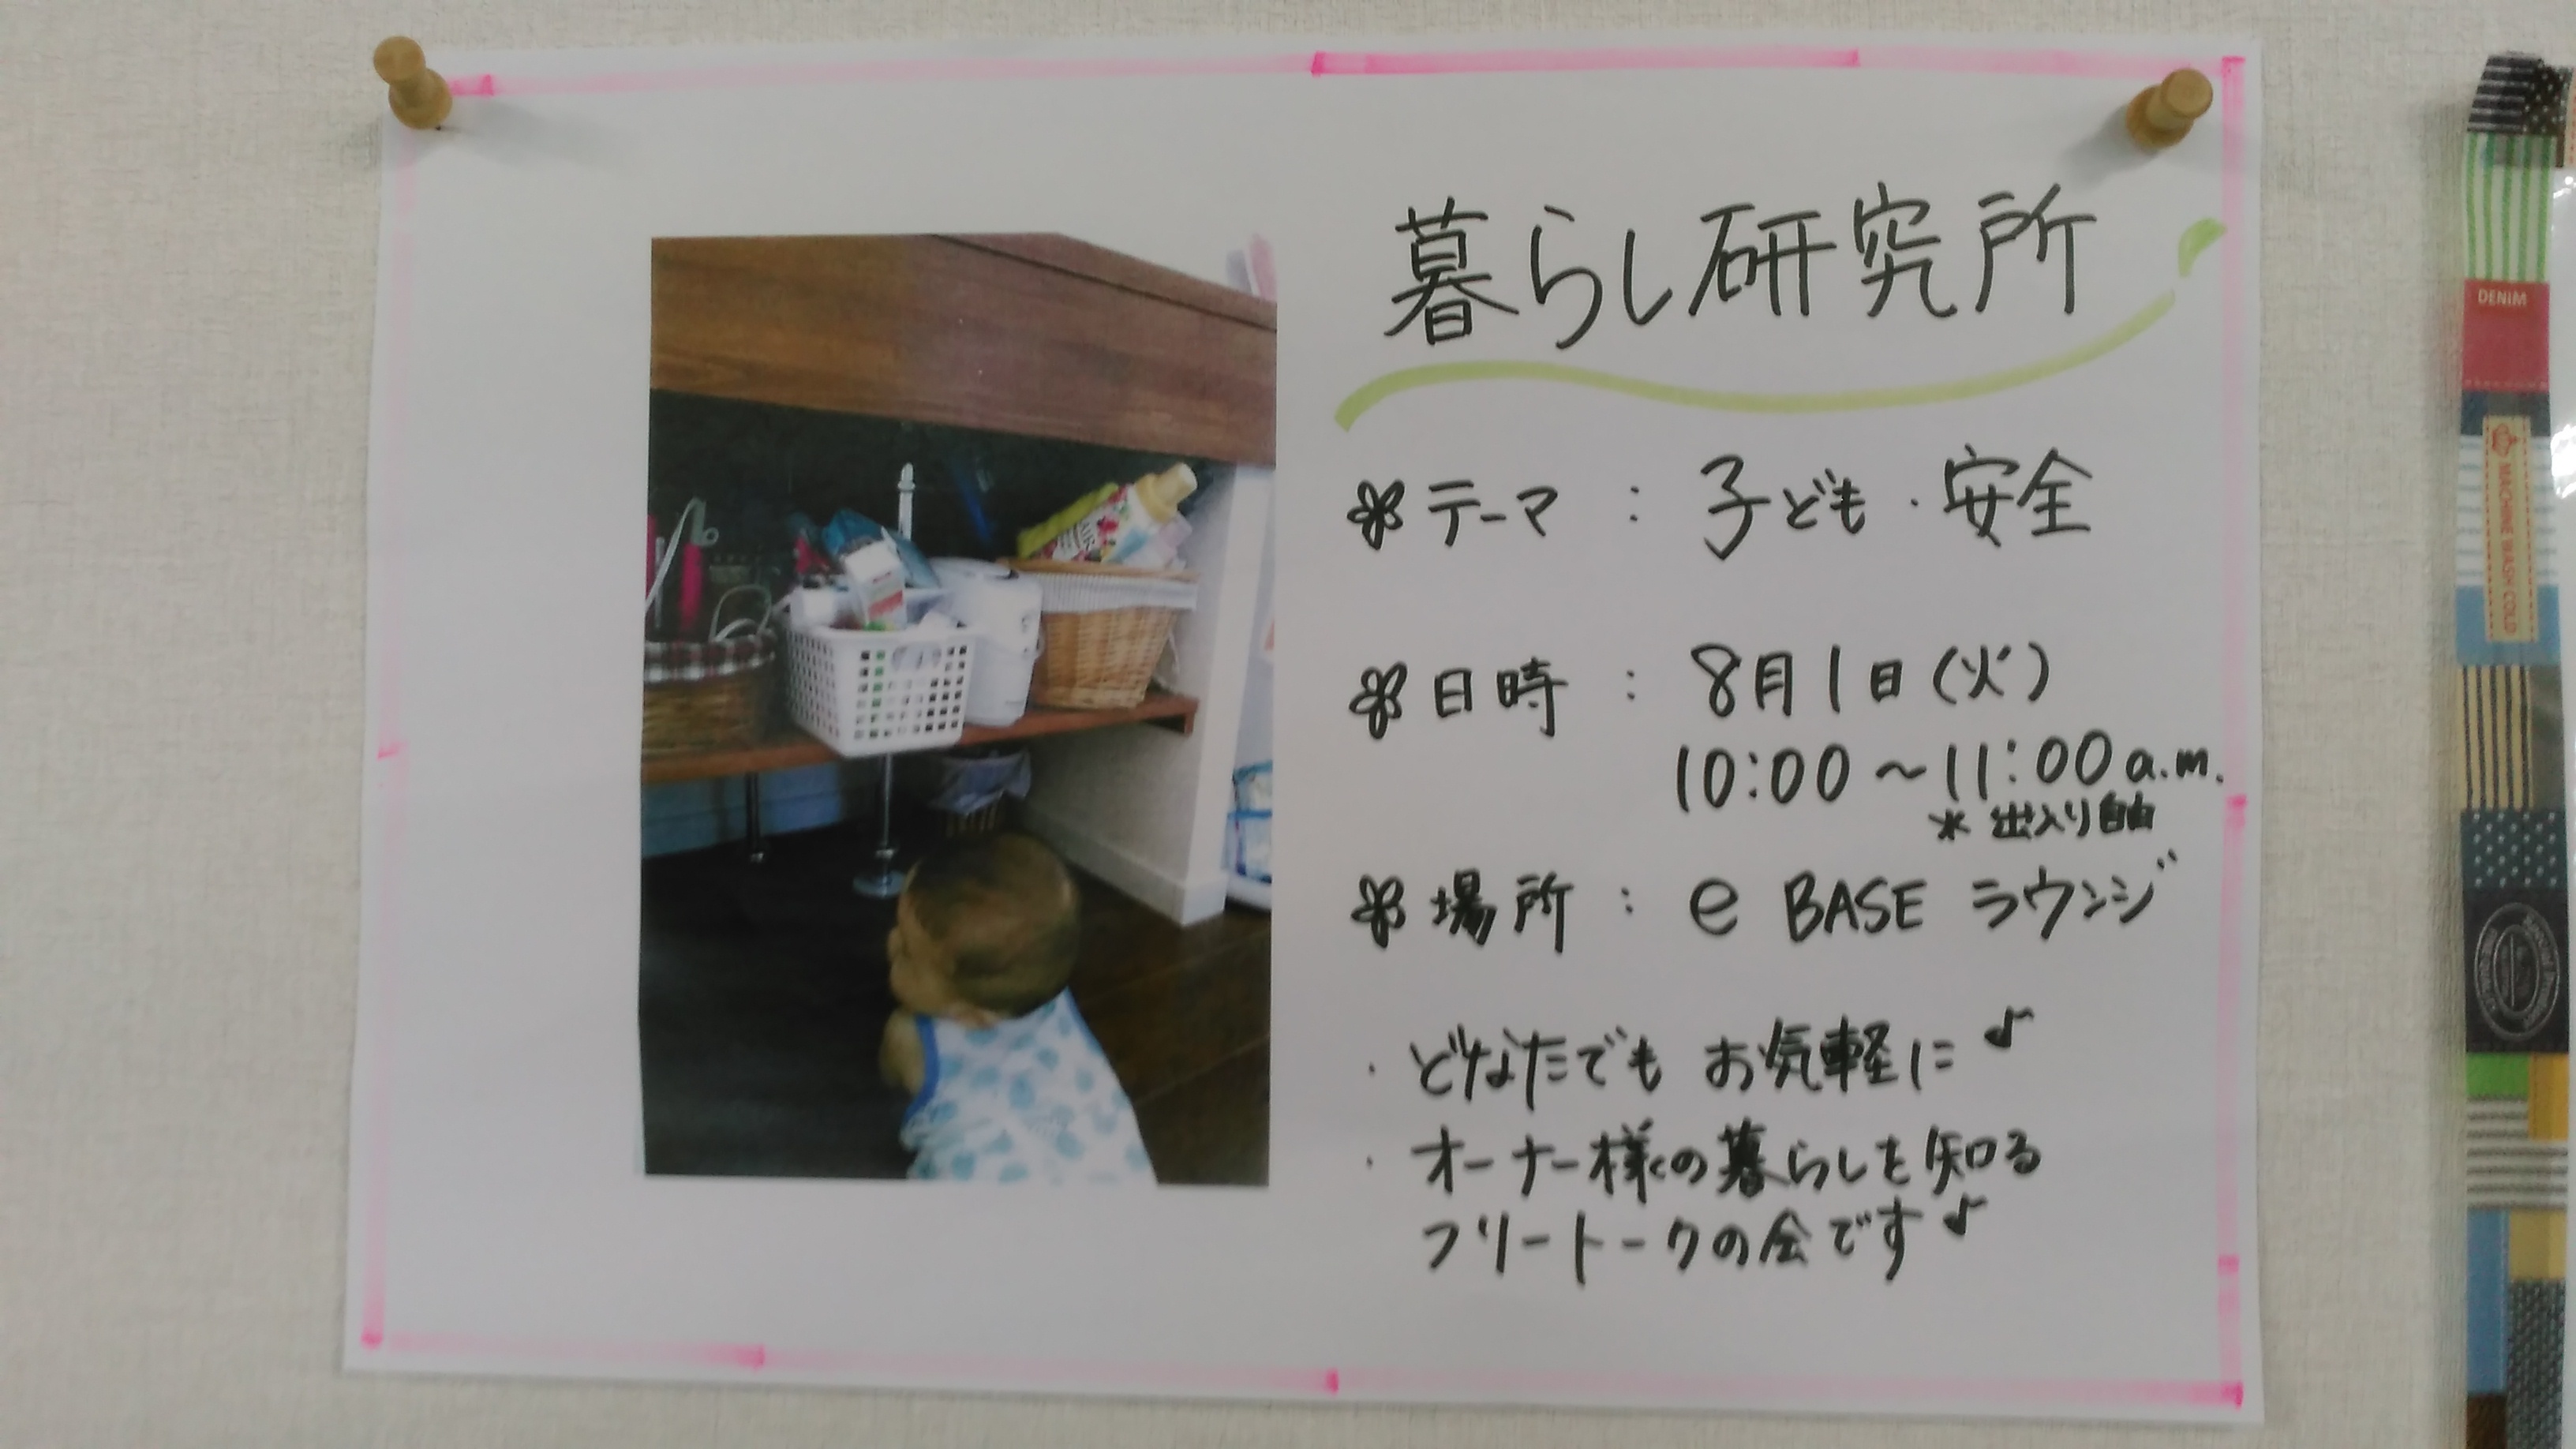 暮らし研究所
テーマ : 子ども・安全
日時 : 8月1日(火)
10:00~11:00 a.m.
* 出入り自由
場所 : e BASE ラウンジ
・どなたでも お気軽に♪
・オーナー様の暮らしを知る
フリートークの会です♪
DENIM
MACHINE WASH COLD